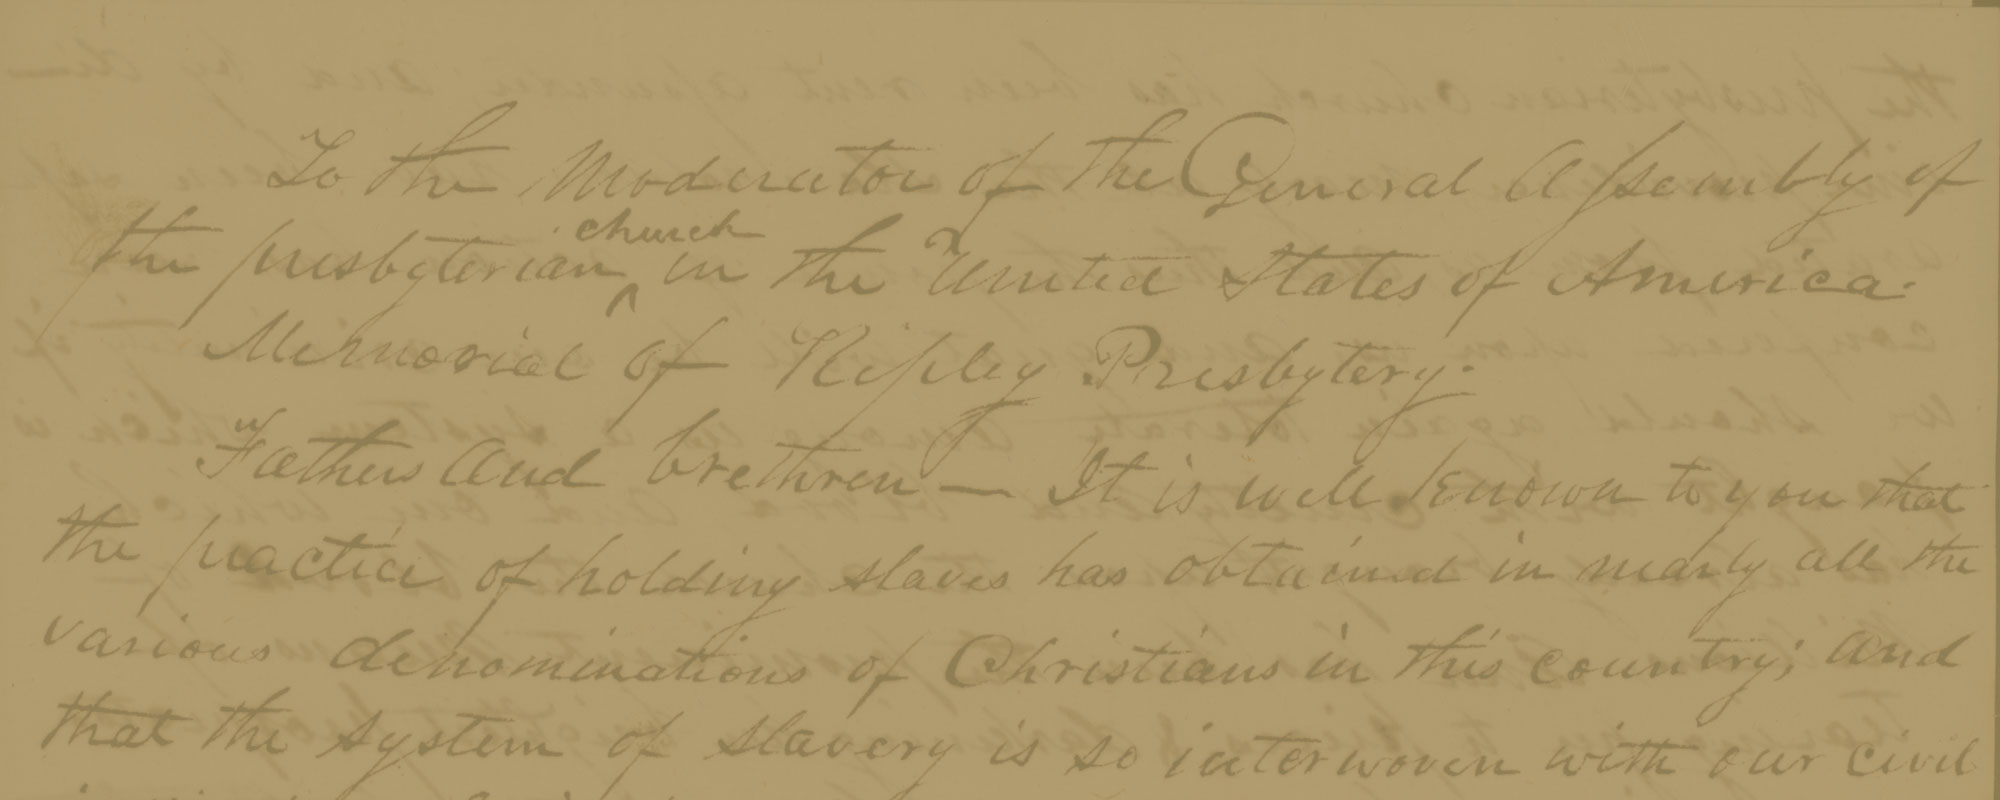 To the Moderator of the General Assembly of
the presbyterian church in the United States of America.
Memorial of Ripley Presbytery.
Fathers and brethren — It is well known to you that
the practice of holding slaves has obtained in nearly all the
various denominations of Christians in this country; and
that the system of slavery is so interwoven with our civil